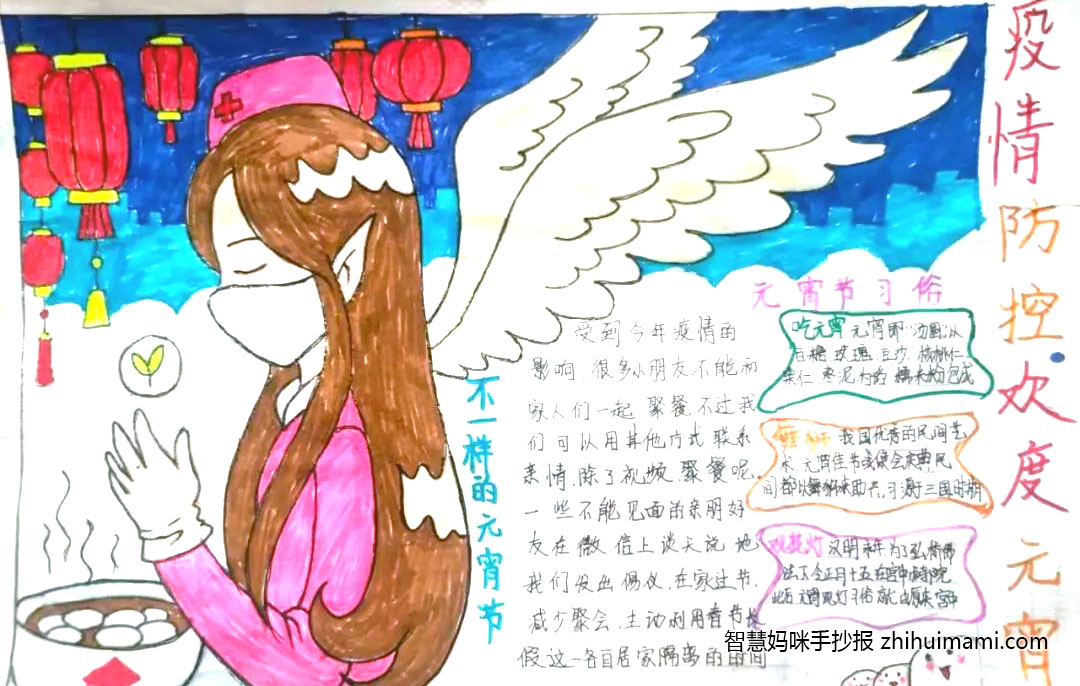 疫情防控欢度元宵
不一样的元宵节
受到今年疫情的
影响,很多小朋友不能和
家人们一起聚餐,不过我
们可以用其他方式联系
亲情,除了视频聚餐呢,
一些不能见面的亲朋好
友在微信上谈天说地
我们发出倡议,在家过节,
减少聚会,主动利用春节长
假这一各自居家隔离的时间
元宵节习俗
吃元宵 元宵即"汤圆"以
白糖 玫瑰 豆沙 核桃仁
果仁 枣泥为馅 糯米粉包成
舞狮 我国优秀的民间艺
术 元宵佳节或集会庆典,民
间都以舞狮来助兴,习源于三国时期
汉明帝永平 为了弘扬佛
法下令正月十五在宫中寺院
智慧妈咪手抄报 zhihuimami.com